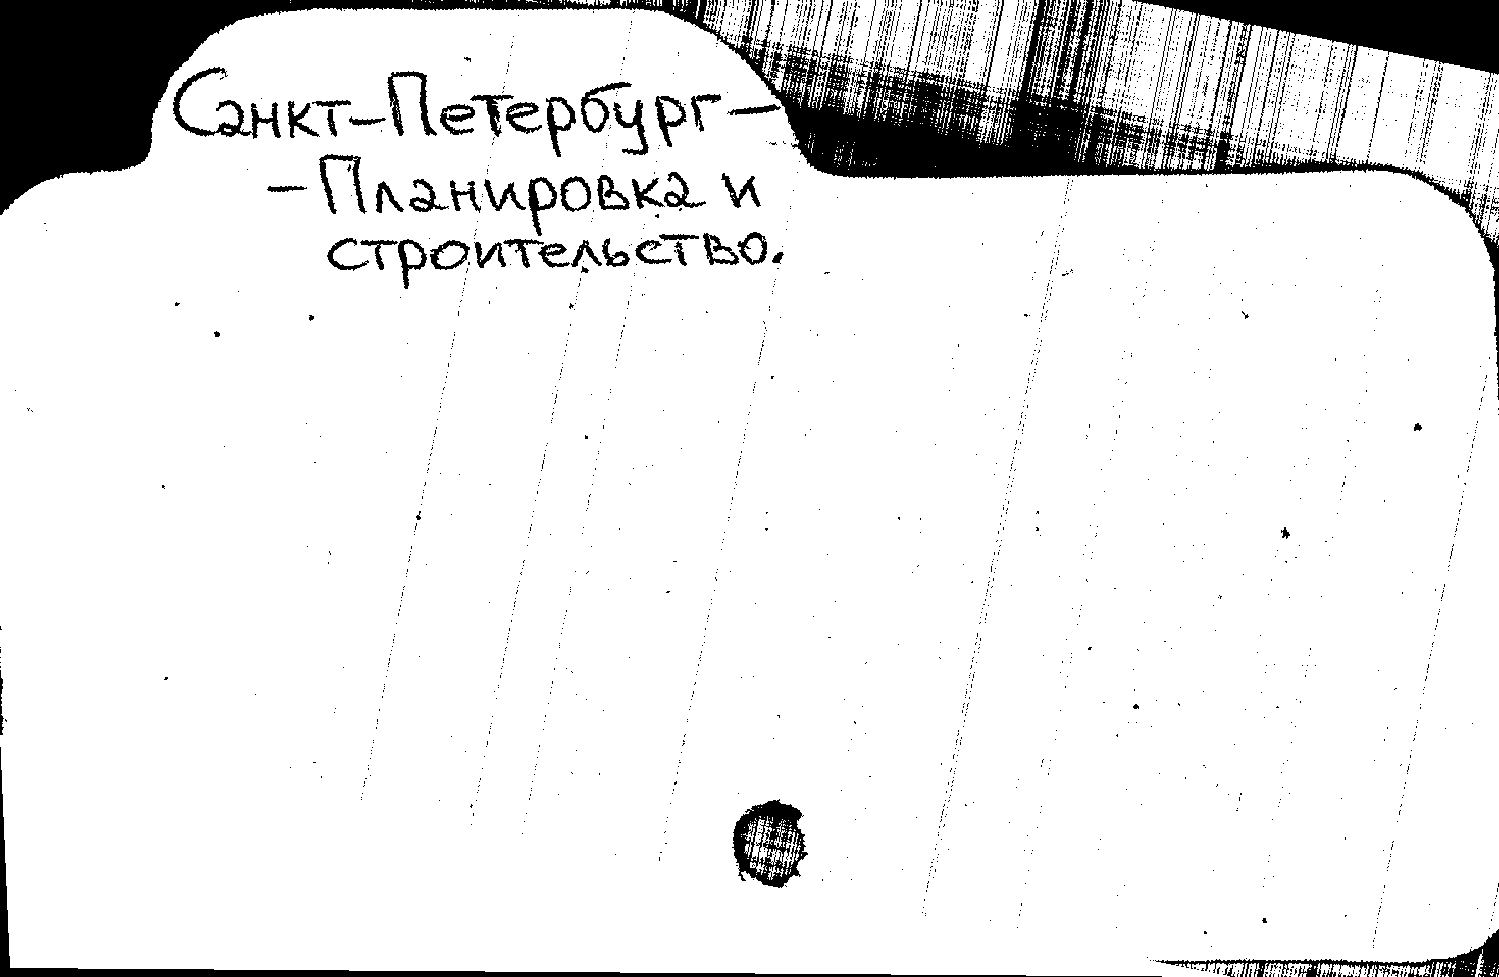 Санкт-Петербург-
-Планировка и
строительство.